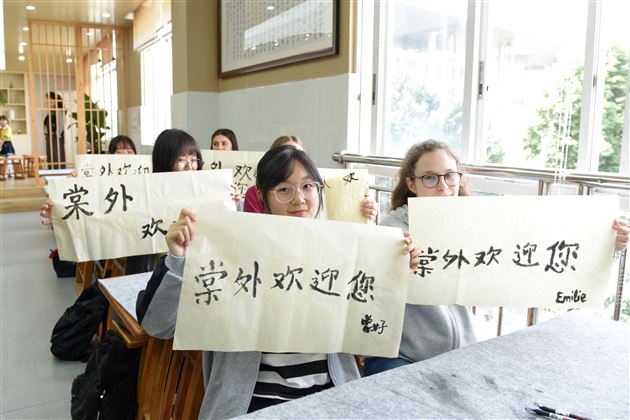 棠外欢
棠外
欢
棠外欢迎您
棠外欢迎您
Emilie